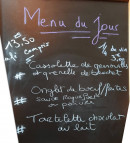 Menu du Jour
13,50
¼ de vin
Cassolette de grenouilles
et grenaille de brochet
Onglet de boeuf/frites
sauce Roquefort
ou poivre
Tartelette chocolat
au lait